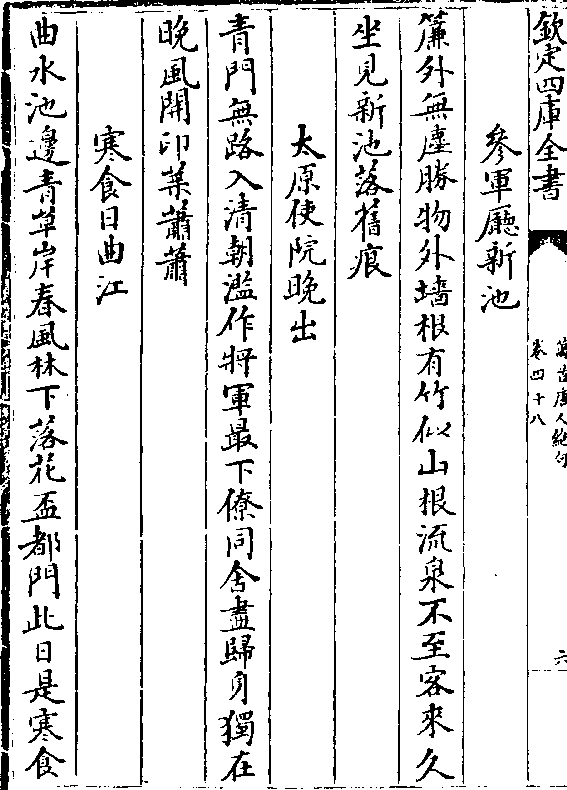 欽定四庫全書
萬首唐人絶句
卷四十八
六
參軍廳新池
簾外無塵勝物外墻根有竹似山根流泉不至客來久
坐見新池落舊痕
太原使院晚出
青門無路入清朝濫作將軍最下僚同舍盡歸身獨在
晚風開印葉蕭蕭
寒食日曲江
曲水池邊青草岸春風林下落花盃都門此日是寒食